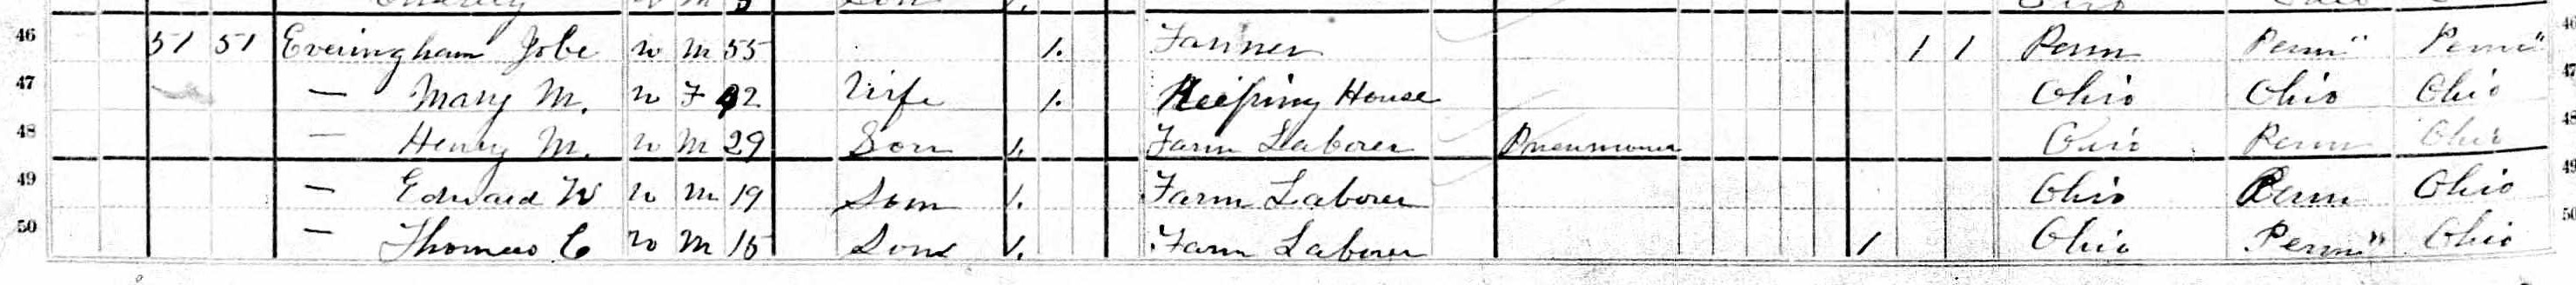 Charley W M 5 Son 1.
46 51 51 Everingham Jobe W M 55 1. Farmer 1 1 Penn Penn" Penn" 46
47 — Mary M. W F 42 Wife 1. Keeping House Ohio Ohio Ohio 47
48 — Henry M. W M 29 Son 1. Farm Laborer Pneumonia Ohio Penn Ohio 48
49 — Edward W W M 19 Son 1. Farm Laborer Ohio Penn Ohio 49
50 — Thomas C W M 15 Son 1. Farm Laborer 1 Ohio Penn" Ohio 50